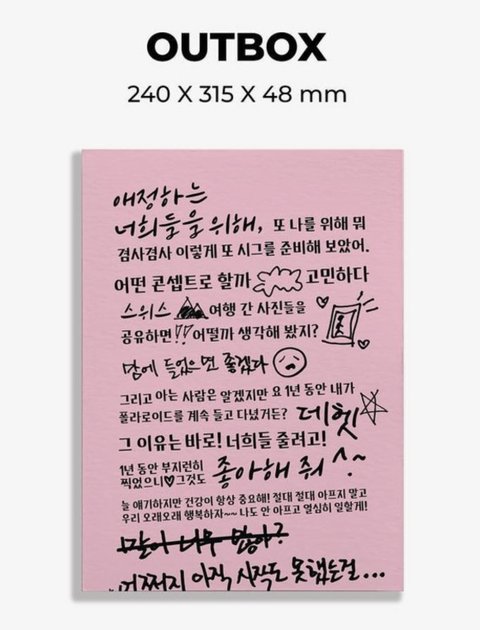 OUTBOX
240 X 315 X 48 mm
애정하는
너희들을 위해, 또 나를 위해 뭐
겸사겸사 이렇게 또 시그를 준비해 보았어.
어떤 콘셉트로 할까 고민하다
스위스 여행 간 사진들을
공유하면!! 어떨까 생각해 봤지?
맘에 들었으면 좋겠다
그리고 아는 사람은 알겠지만 요 1년 동안 내가
폴라로이드를 계속 들고 다녔거든? 데헷
그 이유는 바로! 너희들 줄려고!
1년 동안 부지런히
찍었으니♥그것도 좋아해 줘 ^.~
늘 얘기하지만 건강이 항상 중요해! 절대 절대 아프지 말고
우리 오래오래 행복하자~~ 나도 안 아프고 열심히 일할게!
말이 너무 많아?
어쩌지 아직 시작도 못했는걸...